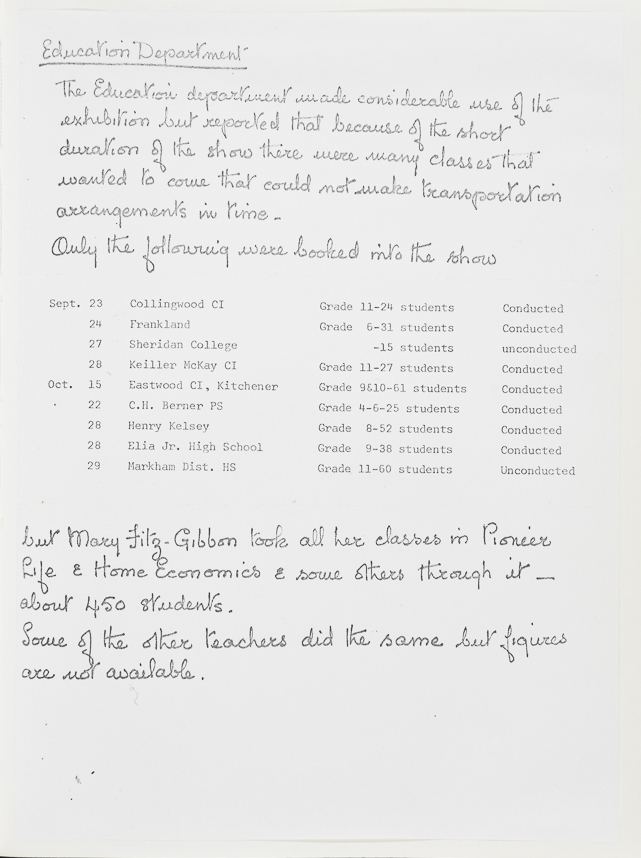 Education Department
The Education department made considerable use of the
exhibition but reported that because of the short
duration of the show there were many classes that
wanted to come that could not make transportation
arrangements in time -
Only the following were booked into the show
Sept. 23 Collingwood CI Grade 11-24 students Conducted
24 Frankland Grade 6-31 students Conducted
27 Sheridan College -15 students unconducted
28 Keiller McKay CI Grade 11-27 students Conducted
Oct. 15 Eastwood CI, Kitchener Grade 9&10-61 students Conducted
22 C.H. Berner PS Grade 4-6-25 students Conducted
28 Henry Kelsey Grade 8-52 students Conducted
28 Elia Jr. High School Grade 9-38 students Conducted
29 Markham Dist. HS Grade 11-60 students Unconducted
but Mary Fitz-Gibbon took all her classes in Pioneer
Life & Home Economics & some others through it —
about 450 students.
Some of the other teachers did the same but figures
are not available.